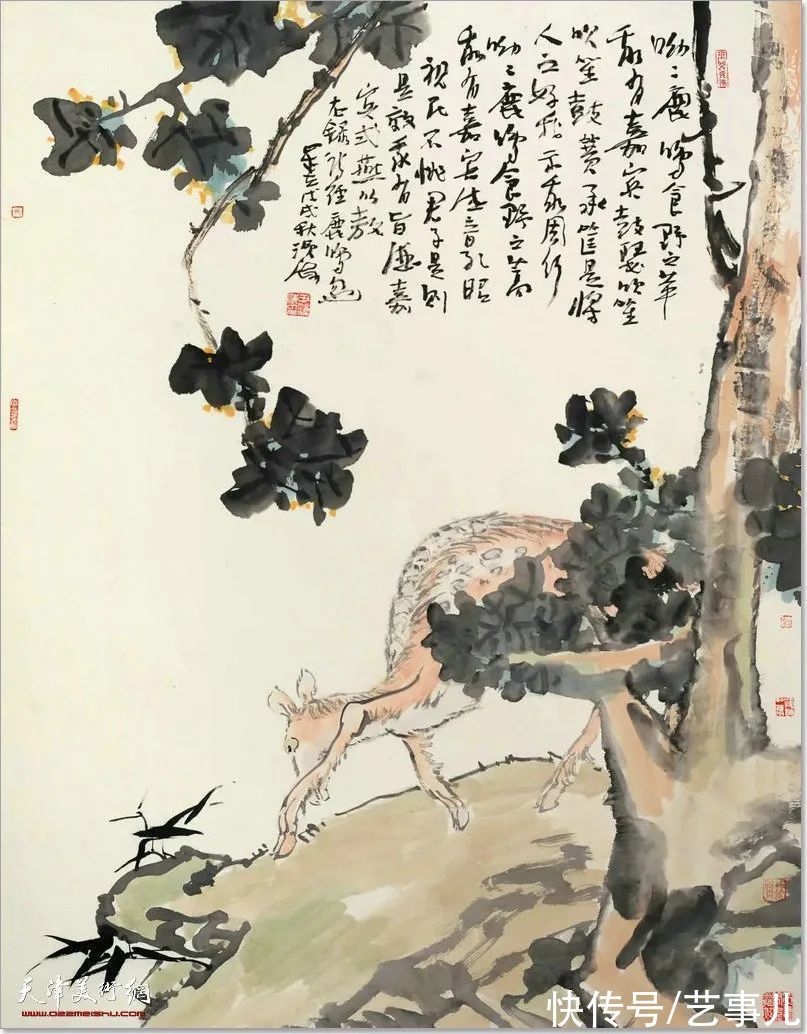 呦呦鹿鸣食野之苹
我有嘉宾鼓瑟吹笙
吹笙鼓簧承筐是将
人之好我示我周行
呦呦鹿鸣食野之蒿
我有嘉宾德音孔昭
视民不恌君子是则
是效我有旨酒嘉
宾式燕以敖
右録诗经鹿鸣句
戊戌秋
天津美術網
www.022meishu.com
快传号/艺事儿